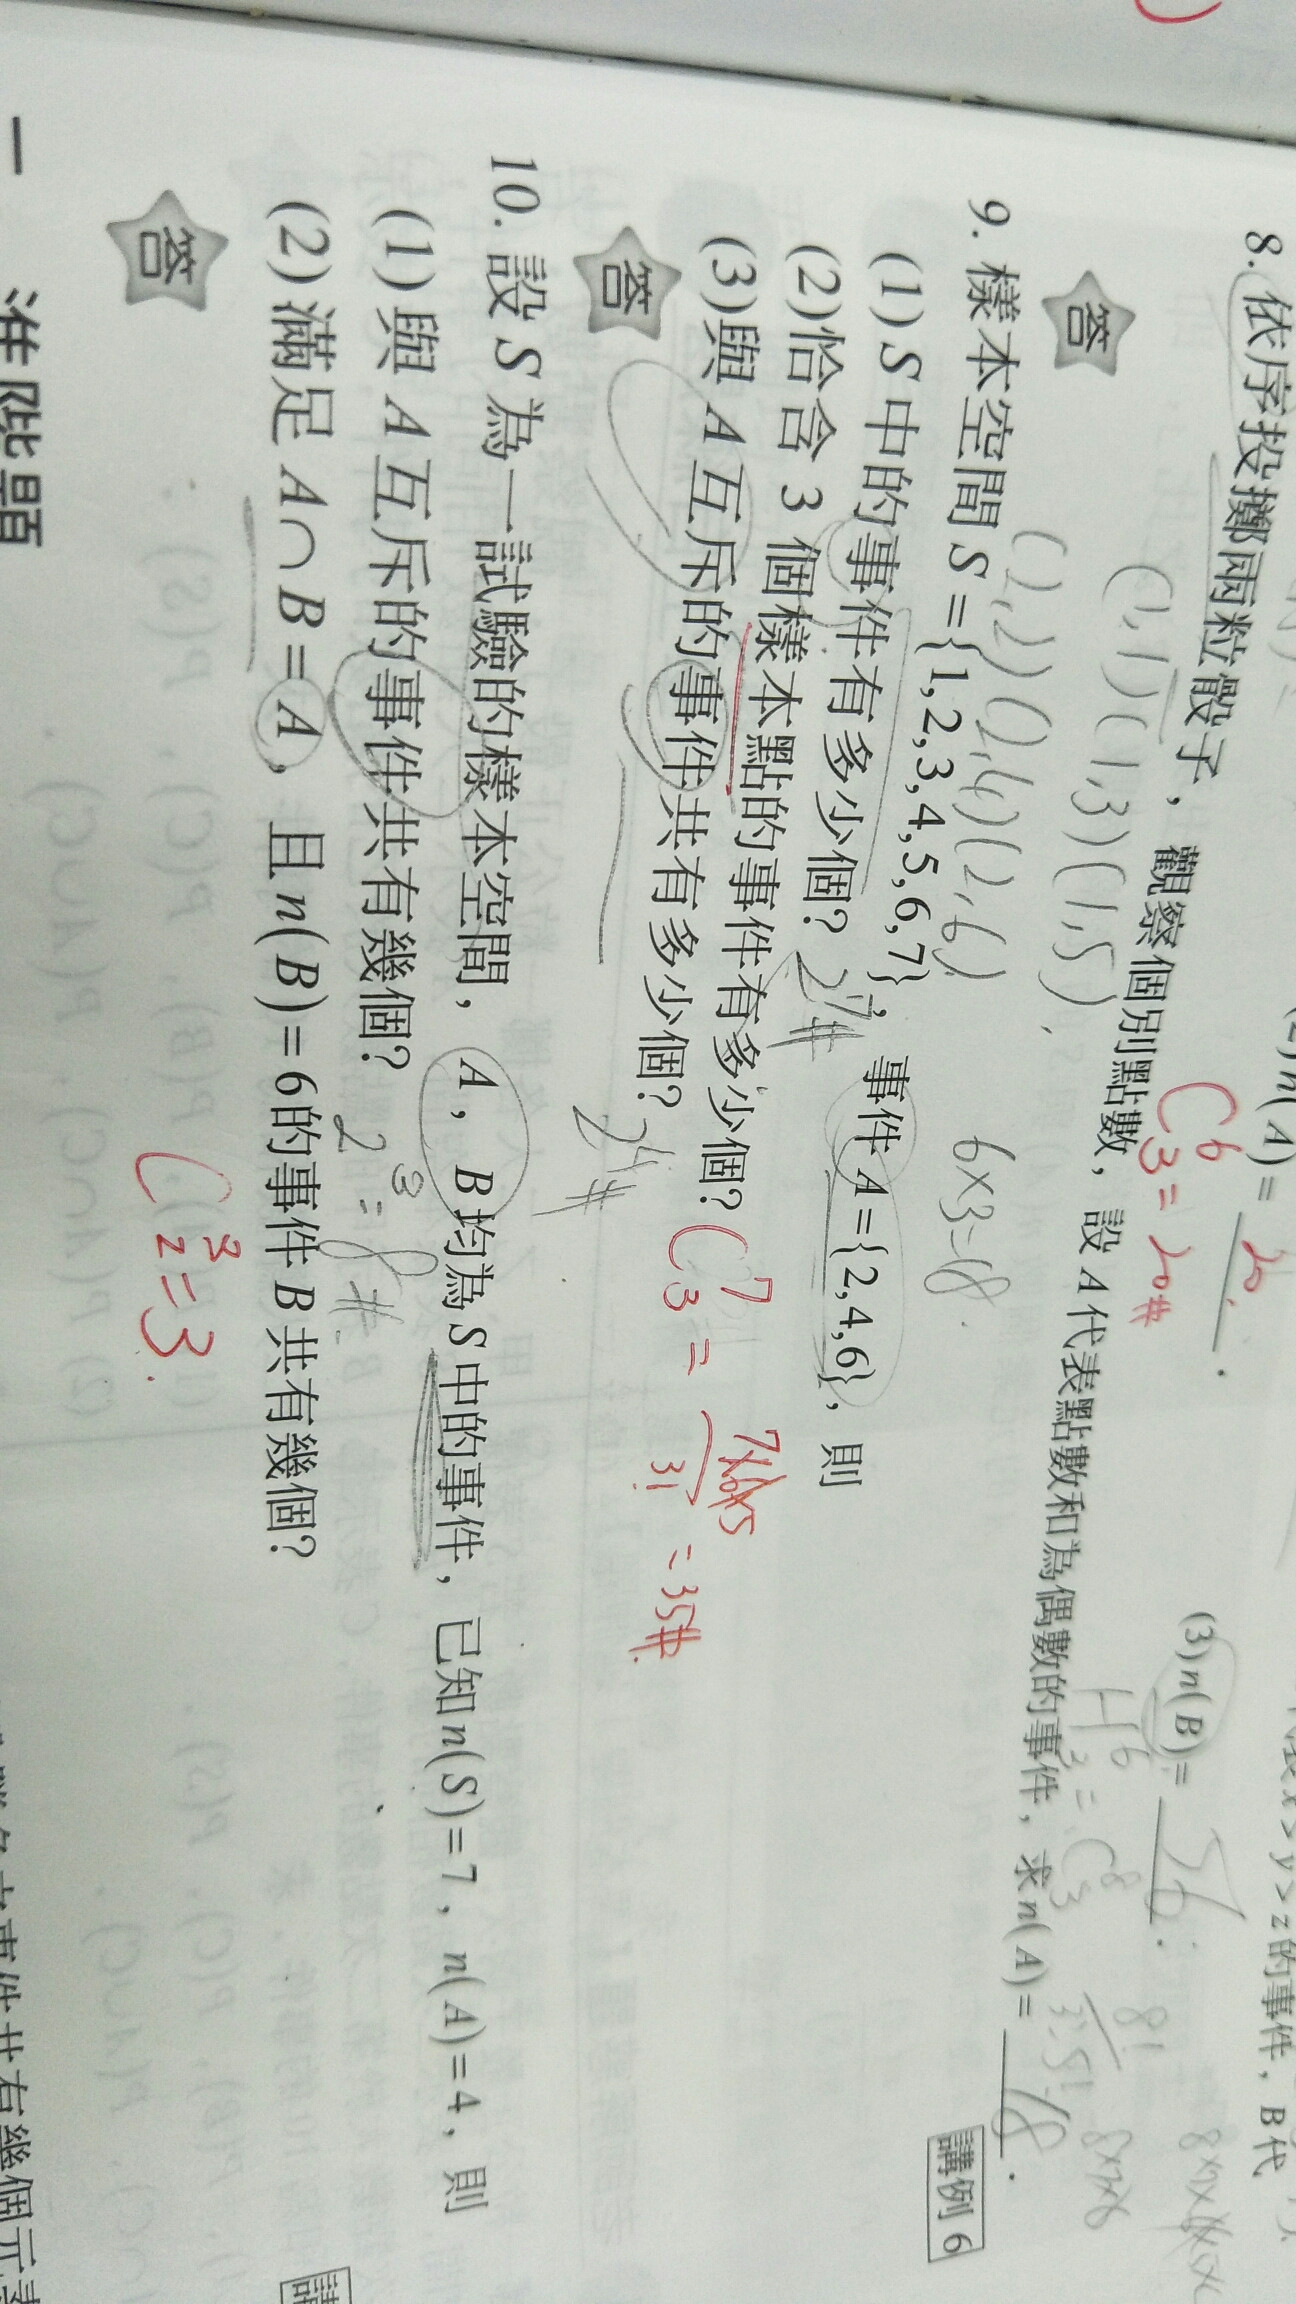 (2)n(A)= 20.
C⁶₃=20#
(3)n(B)= 56.
8.依序投擲兩粒骰子，觀察個別點數，設A代表點數和為偶數的事件，求n(A)= 18.
(1,1)(1,3)(1,5),
(2,2)(2,4)(2,6)
6×3=18
答
H⁶₃=C⁸₃
8!
3!5!
9.樣本空間S={1,2,3,4,5,6,7}，事件A={2,4,6}，則
講例6
(1)S中的事件有多少個? 2⁷#
(2)恰含3個樣本點的事件有多少個? C⁷₃ = 7×6×5 / 3! =35#
(3)與A互斥的事件共有多少個? 2⁴#
答
10.設S為一試驗的樣本空間，A，B均為S中的事件，已知n(S)=7，n(A)=4，則
(1)與A互斥的事件共有幾個? 2³=8#
(2)滿足A∩B=A，且n(B)=6的事件B共有幾個?
C³₂=3
答
一 進階題